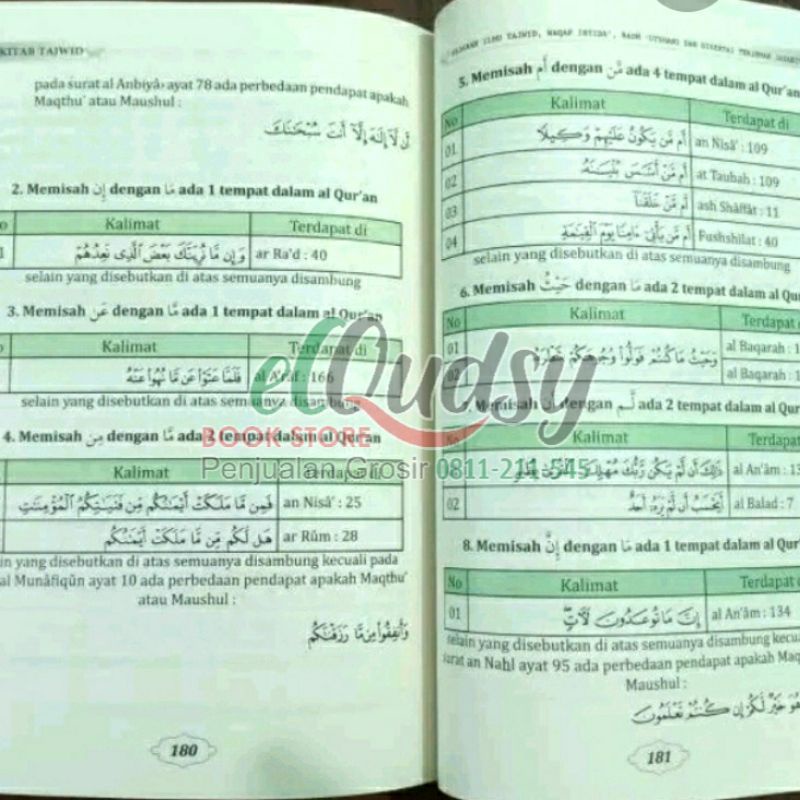 KITAB TAJWID
pada surat al Anbiyâ› ayat 78 ada perbedaan pendapat apakah
Maqthu' atau Maushul :
أَن لَّا إِلَٰهَ إِلَّا أَنتَ سُبْحَٰنَكَ
2. Memisah إِن dengan مَا ada 1 tempat dalam al Qur'an
Kalimat Terdapat di
وَإِن مَّا نُرِيَنَّكَ بَعْضَ الَّذِى نَعِدُهُمْ ar Ra'd : 40
selain yang disebutkan di atas semuanya disambung
3. Memisah عَن dengan مَّا ada 1 tempat dalam al Qur'an
Kalimat Terdapat di
فَلَمَّا عَتَوْا عَن مَّا نُهُوا عَنْهُ al A'râf : 166
selain yang disebutkan di atas semuanya disambung
4. Memisah مِن dengan مَّا ada 2 tempat dalam al Qur'an
Kalimat Terdapat di
فَمِن مَّا مَلَكَتْ أَيْمَٰنُكُم مِّن فَتَيَٰتِكُمُ الْمُؤْمِنَٰتِ an Nisâ' : 25
هَل لَّكُم مِّن مَّا مَلَكَتْ أَيْمَٰنُكُم ar Rûm : 28
yang disebutkan di atas semuanya disambung kecuali pada
al Munâfiqûn ayat 10 ada perbedaan pendapat apakah Maqthu'
atau Maushul :
وَأَنفِقُوا مِن مَّا رَزَقْنَٰكُم
180
ILMU TAJWID, WAQAF IBTIDA', RASM 'UTSMANI DAN DISERTAI
5. Memisah أَم dengan مَّن ada 4 tempat dalam al Qur'an
No Kalimat Terdapat di
01 أَم مَّن يَكُونُ عَلَيْهِمْ وَكِيلًا an Nisâ' : 109
02 أَم مَّنْ أَسَّسَ بُنْيَٰنَهُ at Taubah : 109
03 أَم مَّنْ خَلَقْنَا ash Shâffât : 11
04 أَم مَّن يَأْتِى ءَامِنًا يَوْمَ الْقِيَٰمَةِ Fushshilat : 40
selain yang disebutkan di atas semuanya disambung
6. Memisah حَيْثُ dengan مَا ada 2 tempat dalam al
No Kalimat Terdapat
01 وَحَيْثُ مَا كُنتُمْ فَوَلُّوا وُجُوهَكُمْ شَطْرَهُ al Baqarah :
02 al Baqarah :
7. Memisah أَن dengan لَّم ada 2 tempat dalam al Qur'
Kalimat Terdapat
ذَٰلِكَ أَن لَّمْ يَكُن رَّبُّكَ مُهْلِكَ الْقُرَىٰ بِظُلْمٍ al An'âm :
02 أَيَحْسَبُ أَن لَّمْ يَرَهُ أَحَدٌ al Balad : 7
8. Memisah إِنَّ dengan مَا ada 1 tempat dalam al Qur'
No Kalimat Terdapat
01 إِنَّ مَا تُوعَدُونَ لَآتٍ al An'âm : 134
selain yang disebutkan di atas semuanya disambung
surat an Nahl ayat 95 ada perbedaan pendapat apakah
Maushul :
هُوَ خَيْرٌ لَّكُمْ إِن كُنتُمْ تَعْلَمُونَ
181
elQudsy
BOOK STORE
Penjualan Grosir 0811-211-545